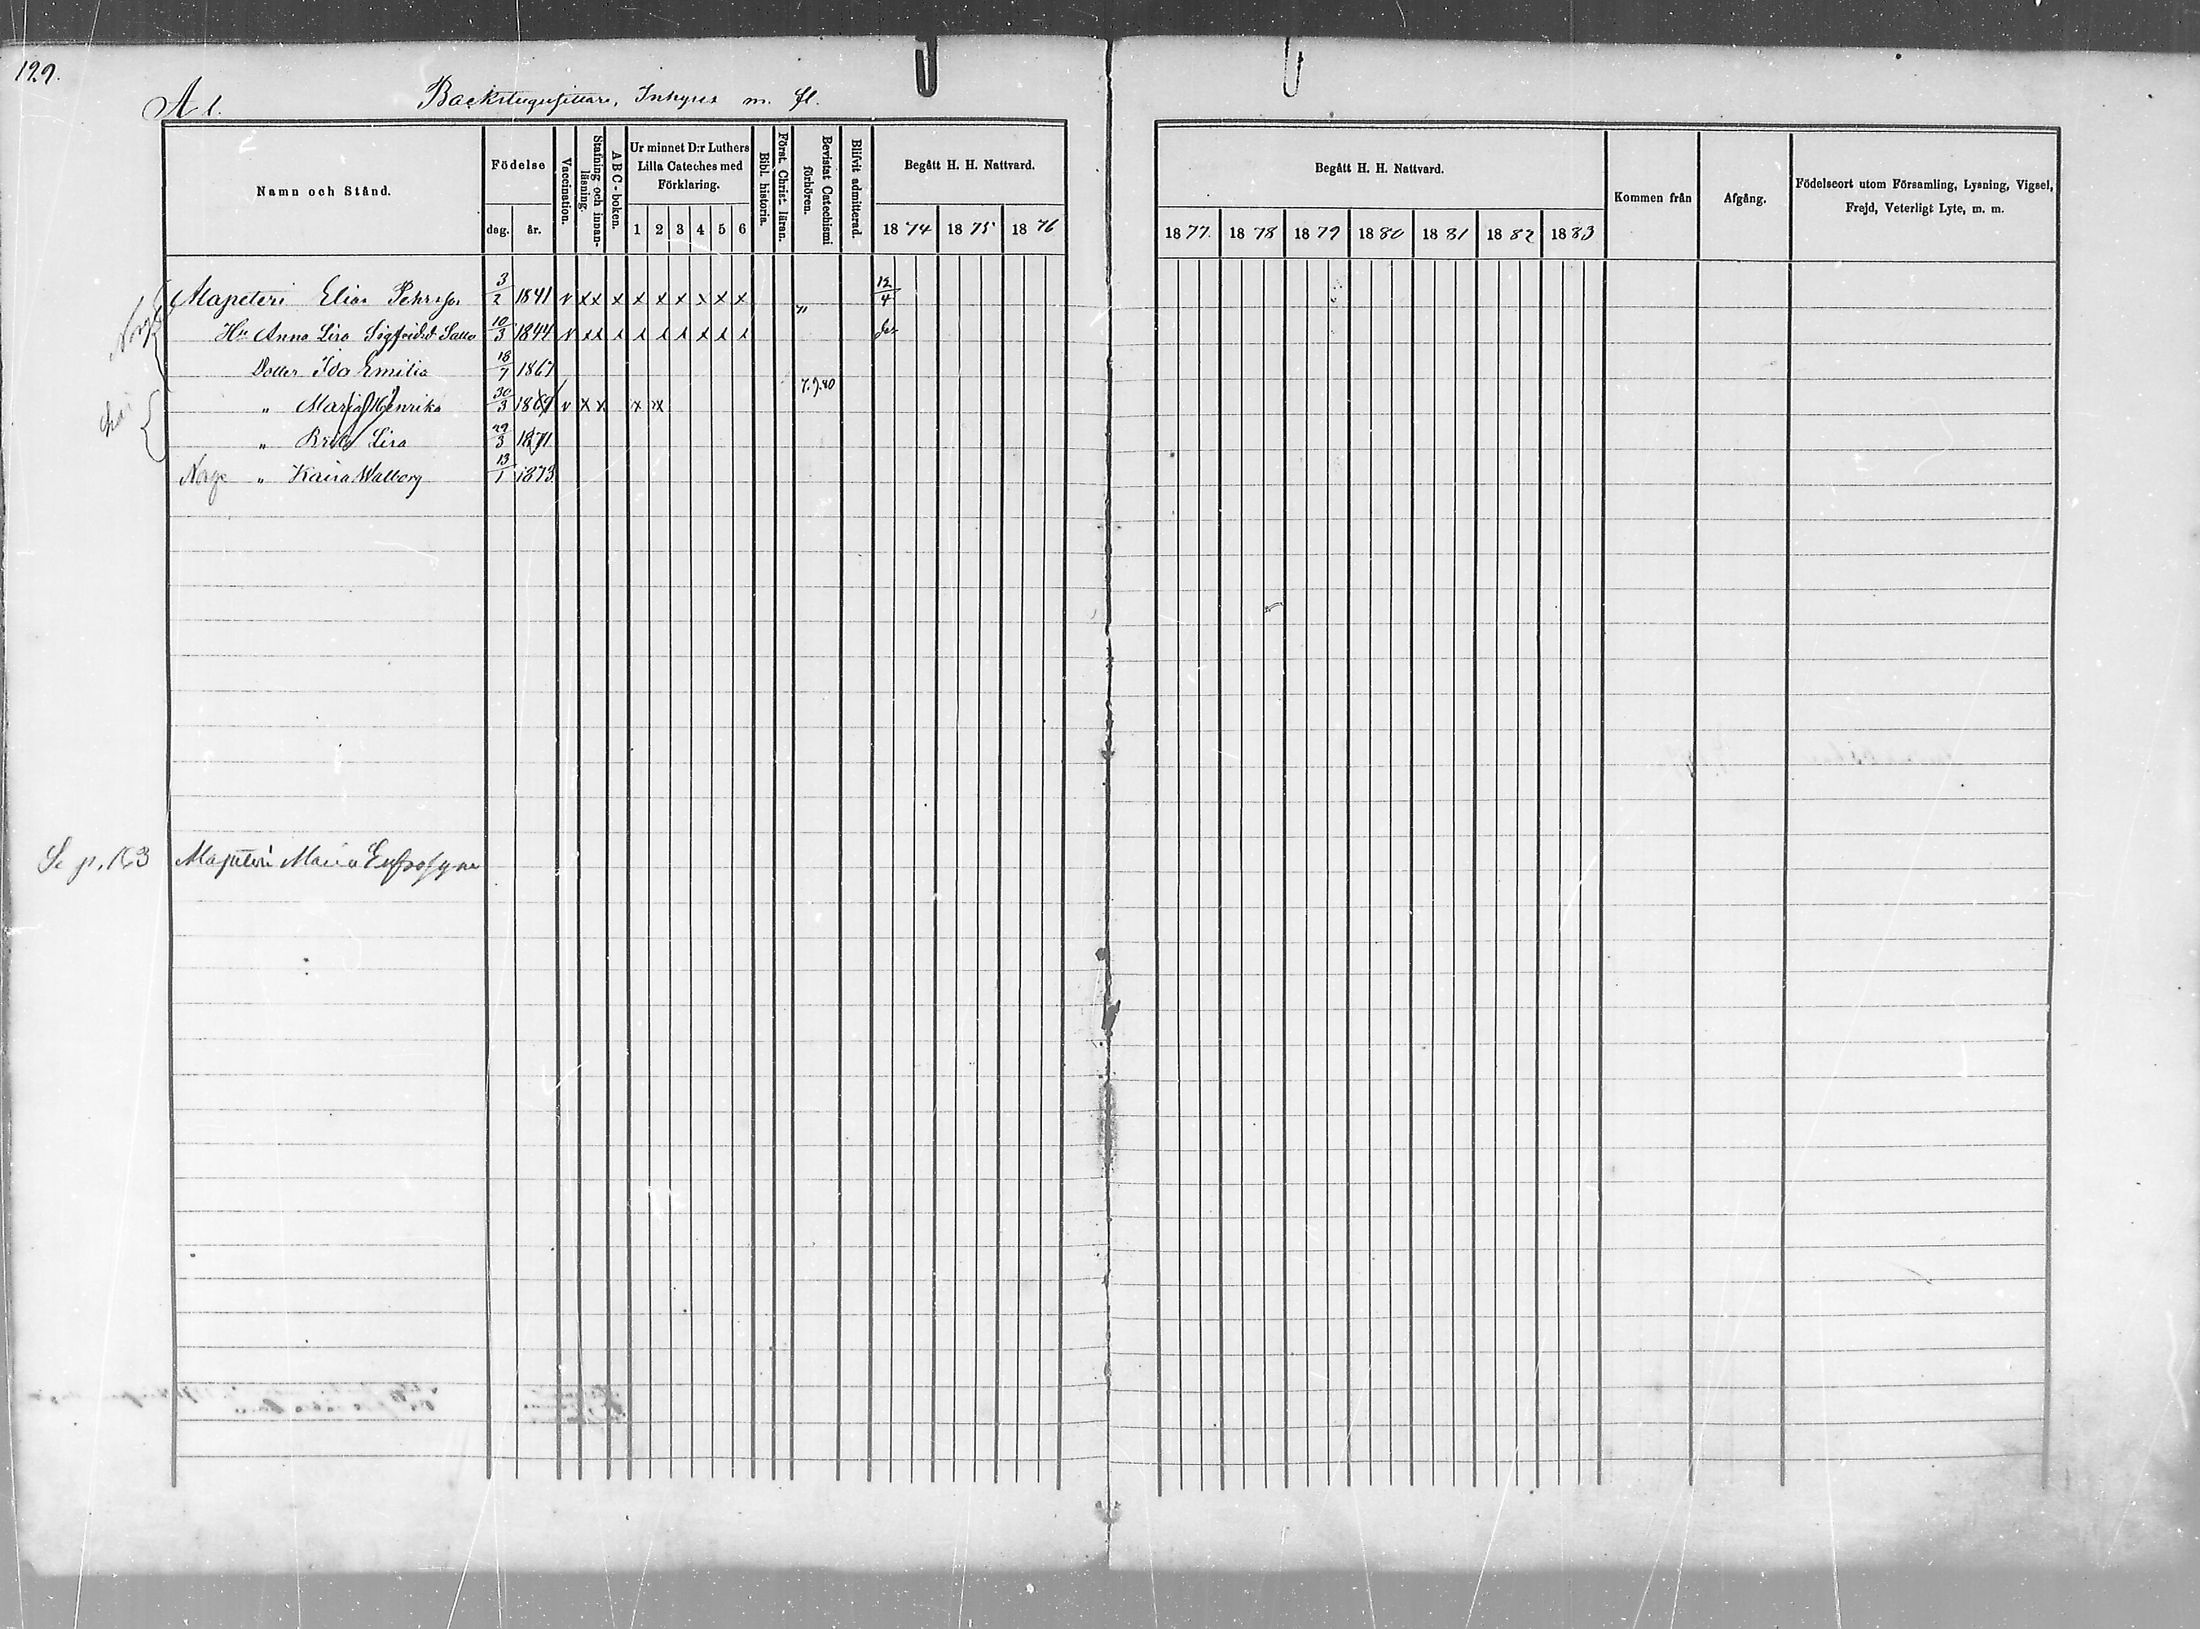 129.
A l.
Backstugusittare, Inhyses m. fl.
Namn och Stånd.
Födelse
dag. år.
Vaccination.
Stafning och innan-läsning.
ABC-boken.
Ur minnet D:r Luthers Lilla Cateches med Förklaring.
1 2 3 4 5 6
Bibl. historia.
Först. Christ. läran.
Bevistat Catechismi förhören.
Blifvit admitterad.
Begått H. H. Nattvard.
1874 1875 1876
Begått H. H. Nattvard.
1877. 1878 1879 1880 1881 1882 1883
Kommen från
Afgång.
Födelseort utom Församling, Lysning, Vigsel, Frejd, Veterligt Lyte, m. m.
Norge
Mapeteri Elias Pehrsson 3/2 1841 v x x x x x x x x x " 12/4
Hu Anna Lisa Sigfridsd. 10/3 1844 v x x x x x x x x x do
Dotter Ida Emilia 18/7 1867
" Maria Henrika 30/3 1869 v x x x x 7.9.80
" Brita Lisa 29/3 1871
Norge " Kaisa Wallborg 13/1 1873
Se p. 163 Mapeteri Maria Eufrosyne